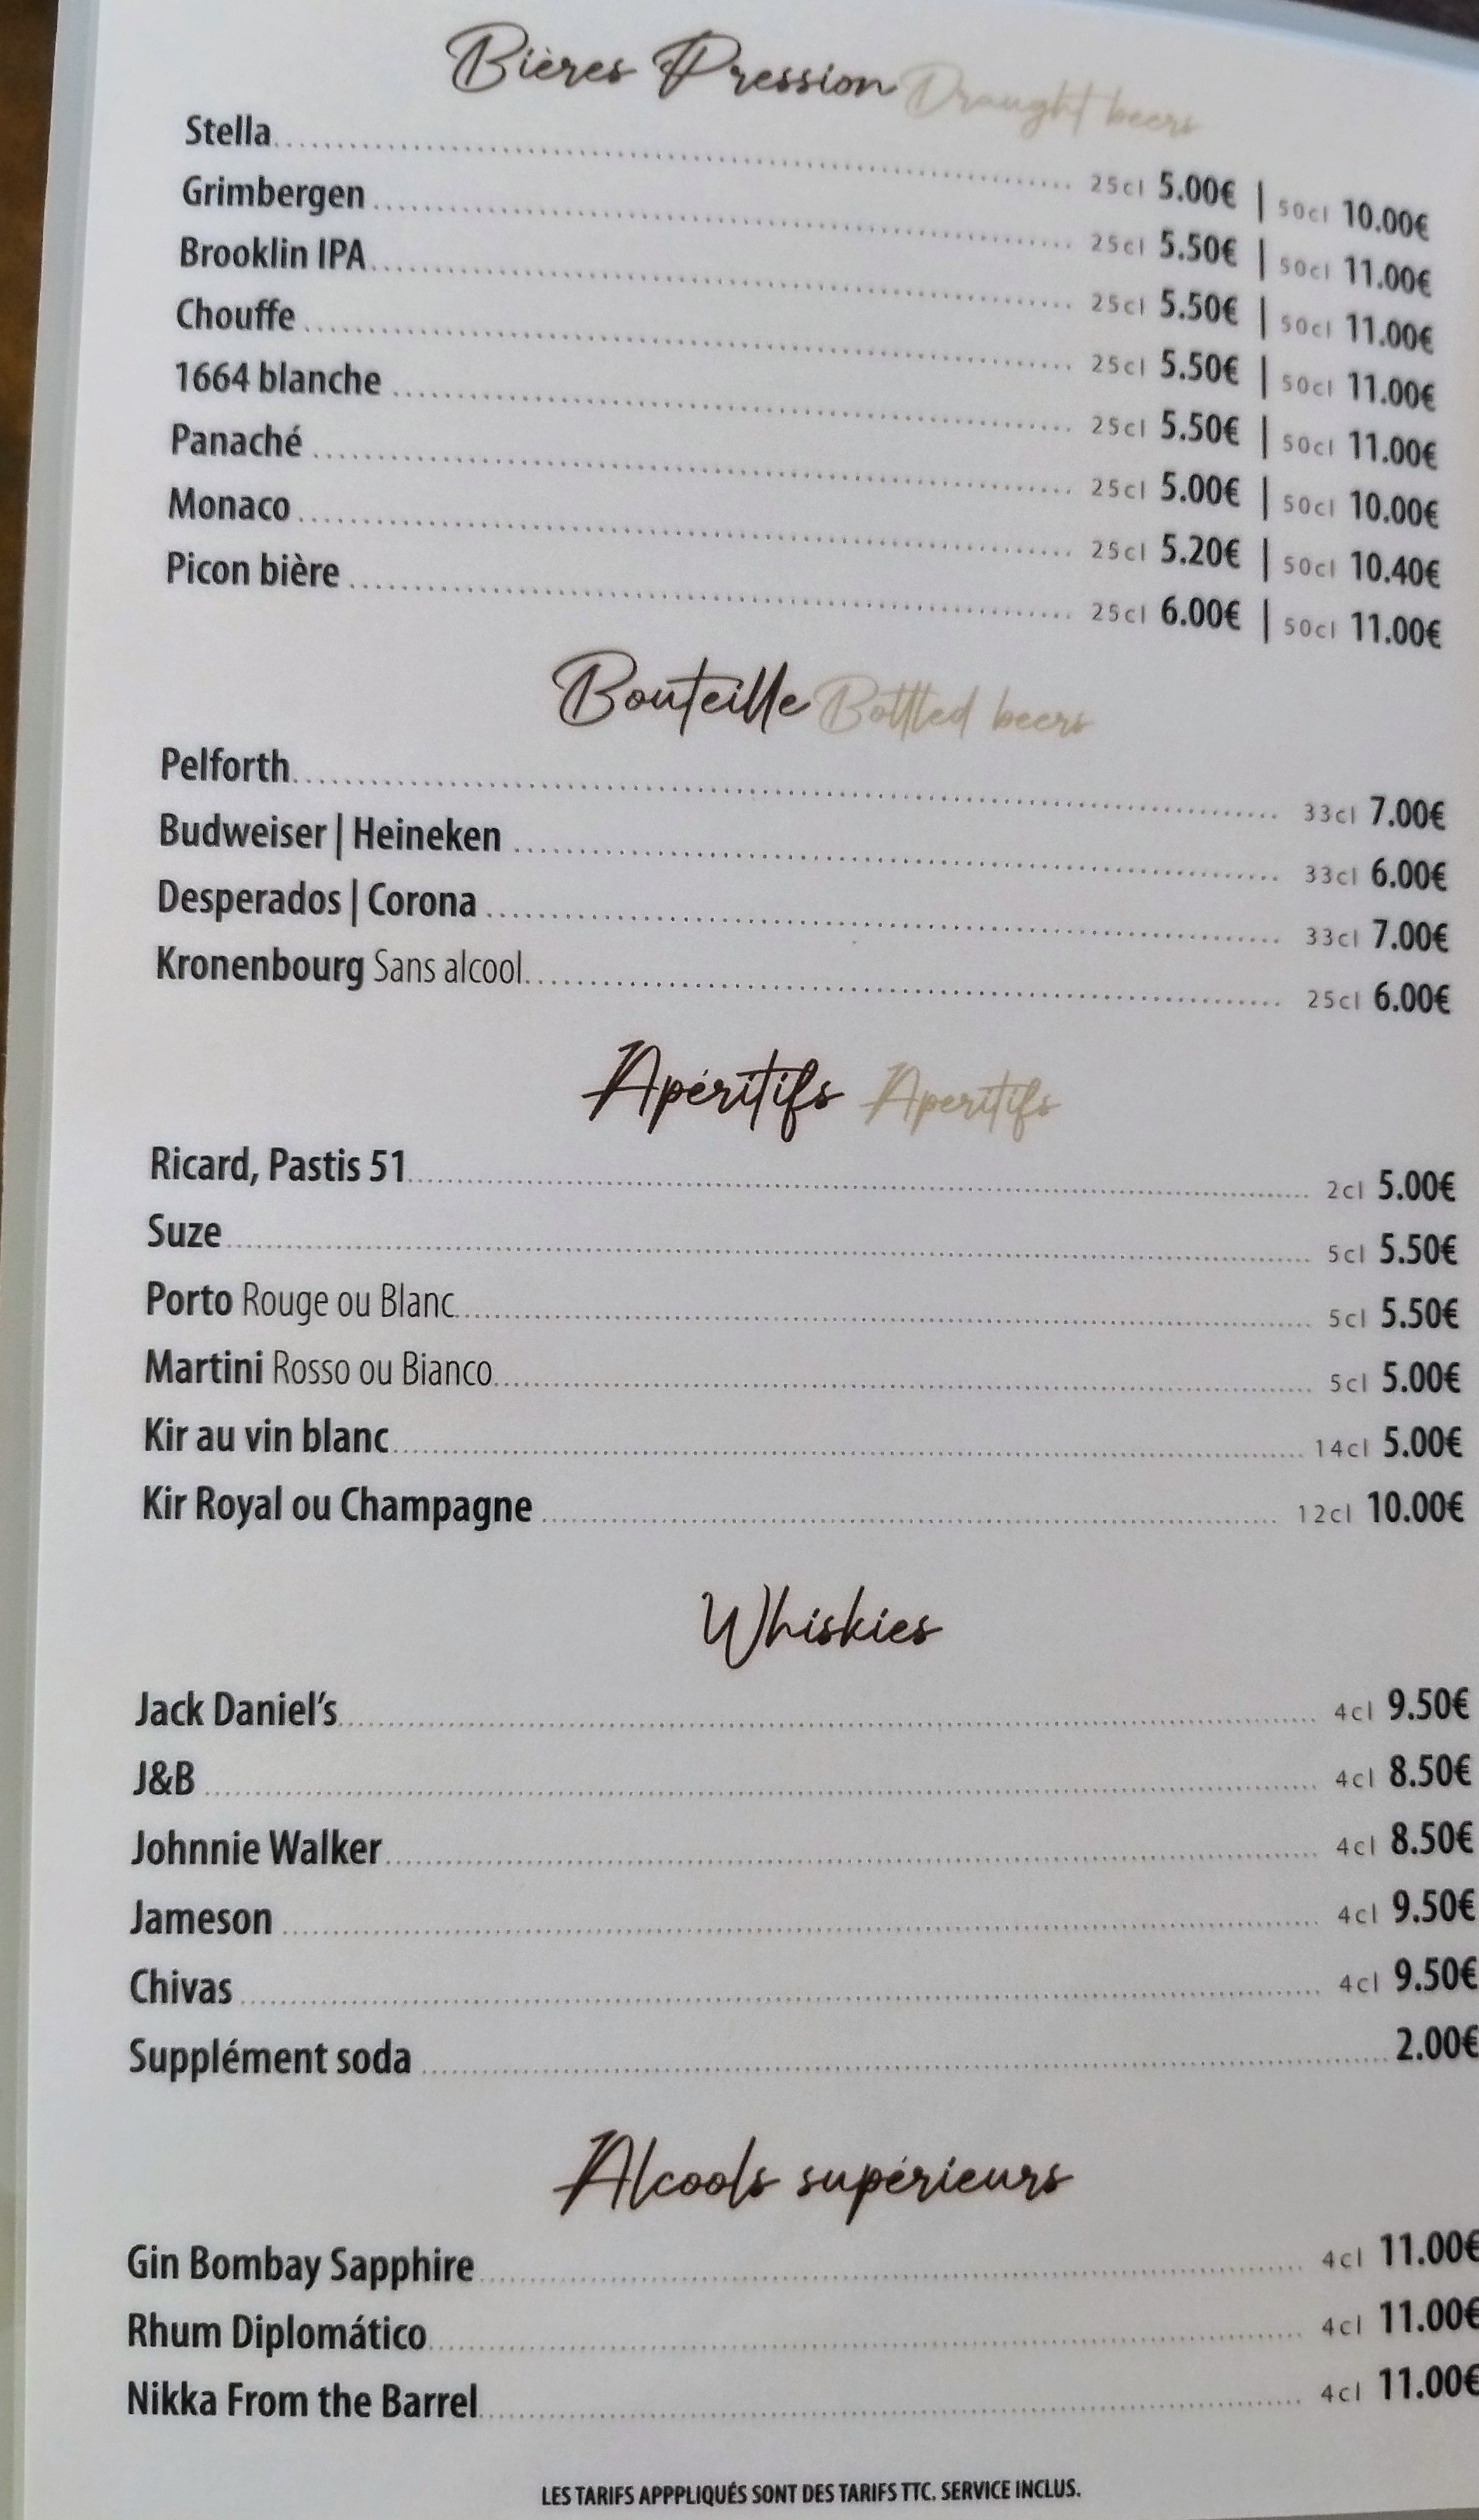 Bières Pression Draught beers
Stella 25cl 5.00€ | 50cl 10.00€
Grimbergen 25cl 5.50€ | 50cl 11.00€
Brooklin IPA 25cl 5.50€ | 50cl 11.00€
Chouffe 25cl 5.50€ | 50cl 11.00€
1664 blanche 25cl 5.50€ | 50cl 11.00€
Panaché 25cl 5.00€ | 50cl 10.00€
Monaco 25cl 5.20€ | 50cl 10.40€
Picon bière 25cl 6.00€ | 50cl 11.00€
Bouteille Bottled beers
Pelforth 33cl 7.00€
Budweiser | Heineken 33cl 6.00€
Desperados | Corona 33cl 7.00€
Kronenbourg Sans alcool 25cl 6.00€
Apéritifs Aperitifs
Ricard, Pastis 51 2cl 5.00€
Suze 5cl 5.50€
Porto Rouge ou Blanc 5cl 5.50€
Martini Rosso ou Bianco 5cl 5.00€
Kir au vin blanc 14cl 5.00€
Kir Royal ou Champagne 12cl 10.00€
Whiskies
Jack Daniel's 4cl 9.50€
J&B 4cl 8.50€
Johnnie Walker 4cl 8.50€
Jameson 4cl 9.50€
Chivas 4cl 9.50€
Supplément soda 2.00€
Alcools supérieurs
Gin Bombay Sapphire 4cl 11.00€
Rhum Diplomático 4cl 11.00€
Nikka From the Barrel 4cl 11.00€
LES TARIFS APPPLIQUÉS SONT DES TARIFS TTC. SERVICE INCLUS.